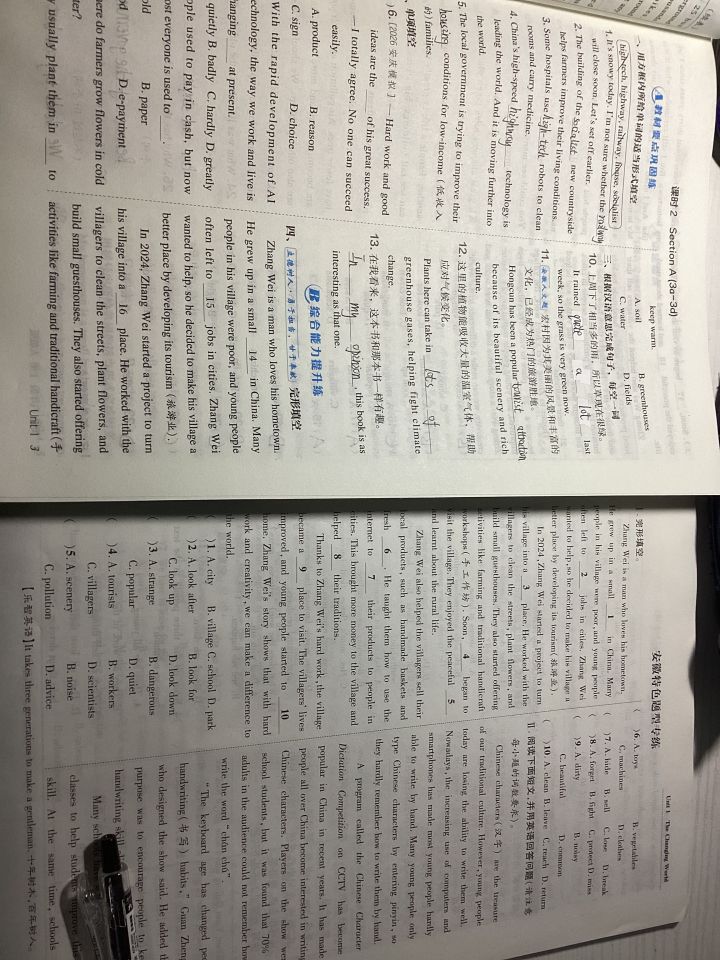 课时 2 Section A (3a~3d)
A 教材要点巩固练
一、用方框内所给单词的适当形式填空
high-tech, highway, railway, house, socialist
1. It's snowy today. I'm not sure whether the
will close soon. Let's set off earlier.
2. The building of the socialist new countryside
helps farmers improve their living conditions.
3. Some hospitals use high-tech robots to clean
rooms and carry medicine.
4. China's high-speed highway technology is
leading the world. And it is moving further into
the world.
5. The local government is trying to improve their
housing conditions for low-income (低收入
的) families.
单项填空
)6. [2026 安庆模拟] Hard work and good
ideas are the of his great success.
— I totally agree. No one can succeed
easily.
A. product B. reason
C. sign D. choice
With the rapid development of AI
technology, the way we work and live is
changing at present.
quietly B. badly C. hardly D. greatly
people used to pay in cash, but now
most everyone is used to .
old B. paper
D. e-payment
here do farmers grow flowers in cold
ter?
y usually plant them in to
keep warm.
A. soil B. greenhouses
C. water D. fields
三、根据汉语意思完成句子，每空一词
10. 上周下了相当多的雨，所以草现在很绿。
It rained quite a lot last
week, so the grass is very green now.
11. 宏村因为其美丽的风景和丰富的
文化，已经成为热门的旅游胜地。
Hongcun has been a popular tourist attraction
because of its beautiful scenery and rich
culture.
12. 这里的植物能吸收大量的温室气体，帮助
应对气候变化。
Plants here can take in lots of
greenhouse gases, helping fight climate
change.
13. 在我看来，这本书和那本书一样有趣。
In my opinion, this book is as
interesting as that one.
B 综合能力提升练
四、完形填空
Zhang Wei is a man who loves his hometown.
He grew up in a small 14 in China. Many
people in his village were poor, and young people
often left to 15 jobs in cities. Zhang Wei
wanted to help, so he decided to make his village a
better place by developing its tourism (旅游业).
In 2024, Zhang Wei started a project to turn
his village into a 16 place. He worked with the
villagers to clean the streets, plant flowers, and
build small guesthouses. They also started offering
activities like farming and traditional handicraft (手
Unit 1 3
Unit 1 The Changing World
安徽特色题型专练
完形填空。
Zhang Wei is a man who loves his hometown.
He grew up in a small 1 in China. Many
people in his village were poor, and young people
often left to 2 jobs in cities. Zhang Wei
wanted to help, so he decided to make his village a
better place by developing its tourism(旅游业).
In 2024, Zhang Wei started a project to turn
his village into a 3 place. He worked with the
villagers to clean the streets, plant flowers, and
build small guesthouses. They also started offering
activities like farming and traditional handicraft
workshops(手工作坊). Soon, 4 began to
visit the village. They enjoyed the peaceful 5
and learnt about the rural life.
Zhang Wei also helped the villagers sell their
local products, such as handmade baskets and
fresh 6 . He taught them how to use the
internet to 7 their products to people in
cities. This brought more money to the village and
helped 8 their traditions.
Thanks to Zhang Wei's hard work, the village
became a 9 place to visit. The villagers' lives
improved, and young people started to 10
home. Zhang Wei's story shows that with hard
work and creativity, we can make a difference to
the world.
( )1. A. city B. village C. school D. park
( )2. A. look after B. look for
C. look up D. look down
( )3. A. strange B. dangerous
C. popular D. quiet
( )4. A. tourists B. workers
C. villagers D. scientists
( )5. A. scenery B. noise
C. pollution D. advice
( )6. A. toys B. vegetables
C. machines D. clothes
( )7. A. hide B. sell C. lose D. break
( )8. A. forget B. fight C. protect D. miss
( )9. A. dirty B. noisy
C. beautiful D. common
( )10. A. clean B. leave C. reach D. return
II. 阅读下面短文，并用英语回答问题(请注意
每小题的词数要求)。
Chinese characters (汉字) are the treasure
of our traditional culture. However, young people
today are losing the ability to write them well.
Nowadays, the increasing use of computers and
smartphones has made most young people hardly
able to write by hand. Many young people only
type Chinese characters by entering pinyin, so
they hardly remember how to write them by hand.
A program called the Chinese Character
Dictation Competition on CCTV has become
popular in China in recent years. It has made
people all over China become interested in writing
Chinese characters. Players on the show were
school students, but it was found that 70%
adults in the audience could not remember how
write the word "chán chú".
"The keyboard age has changed
handwriting(书写) habits," Guan Zheng
who designed the show said. He added
purpose was to encourage people to
handwriting skill.
Many
classes to help students improve
skill. At the same time, schools
【乐智英语】It takes three generations to make a gentleman. 十年树木，百年树人。